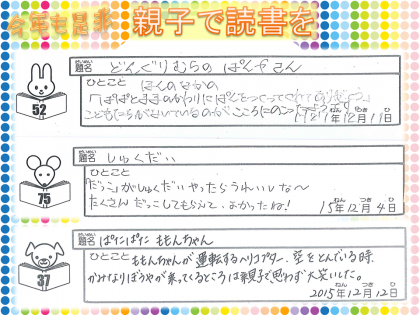 今年も是非 親子で読書を
だいめい
題名 どんぐりむらの ぱんやさん
ひとこと ほんのなかの
「ぱぱとままのかわりにぱんをつくってくれてありがとう」
こどもたちがかいているのが こころにのこ
ねん つき ひ
年12月11日
52
だいめい
題名 しゅくだい
ひとこと
「だっこ」がしゅくだいやったらうれしいな〜
たくさんだっこしてもらえて、よかったね!
ねん つき ひ
15年12月4日
75
だいめい
題名 ぱたぱた ももんちゃん
ひとこと ももんちゃんが運転するヘリコプター、空をとんでいる時、
かみなりぼうやが乗ってくるところは親子で思わず大笑いした。
ねん つき ひ
2015年12月12日
37